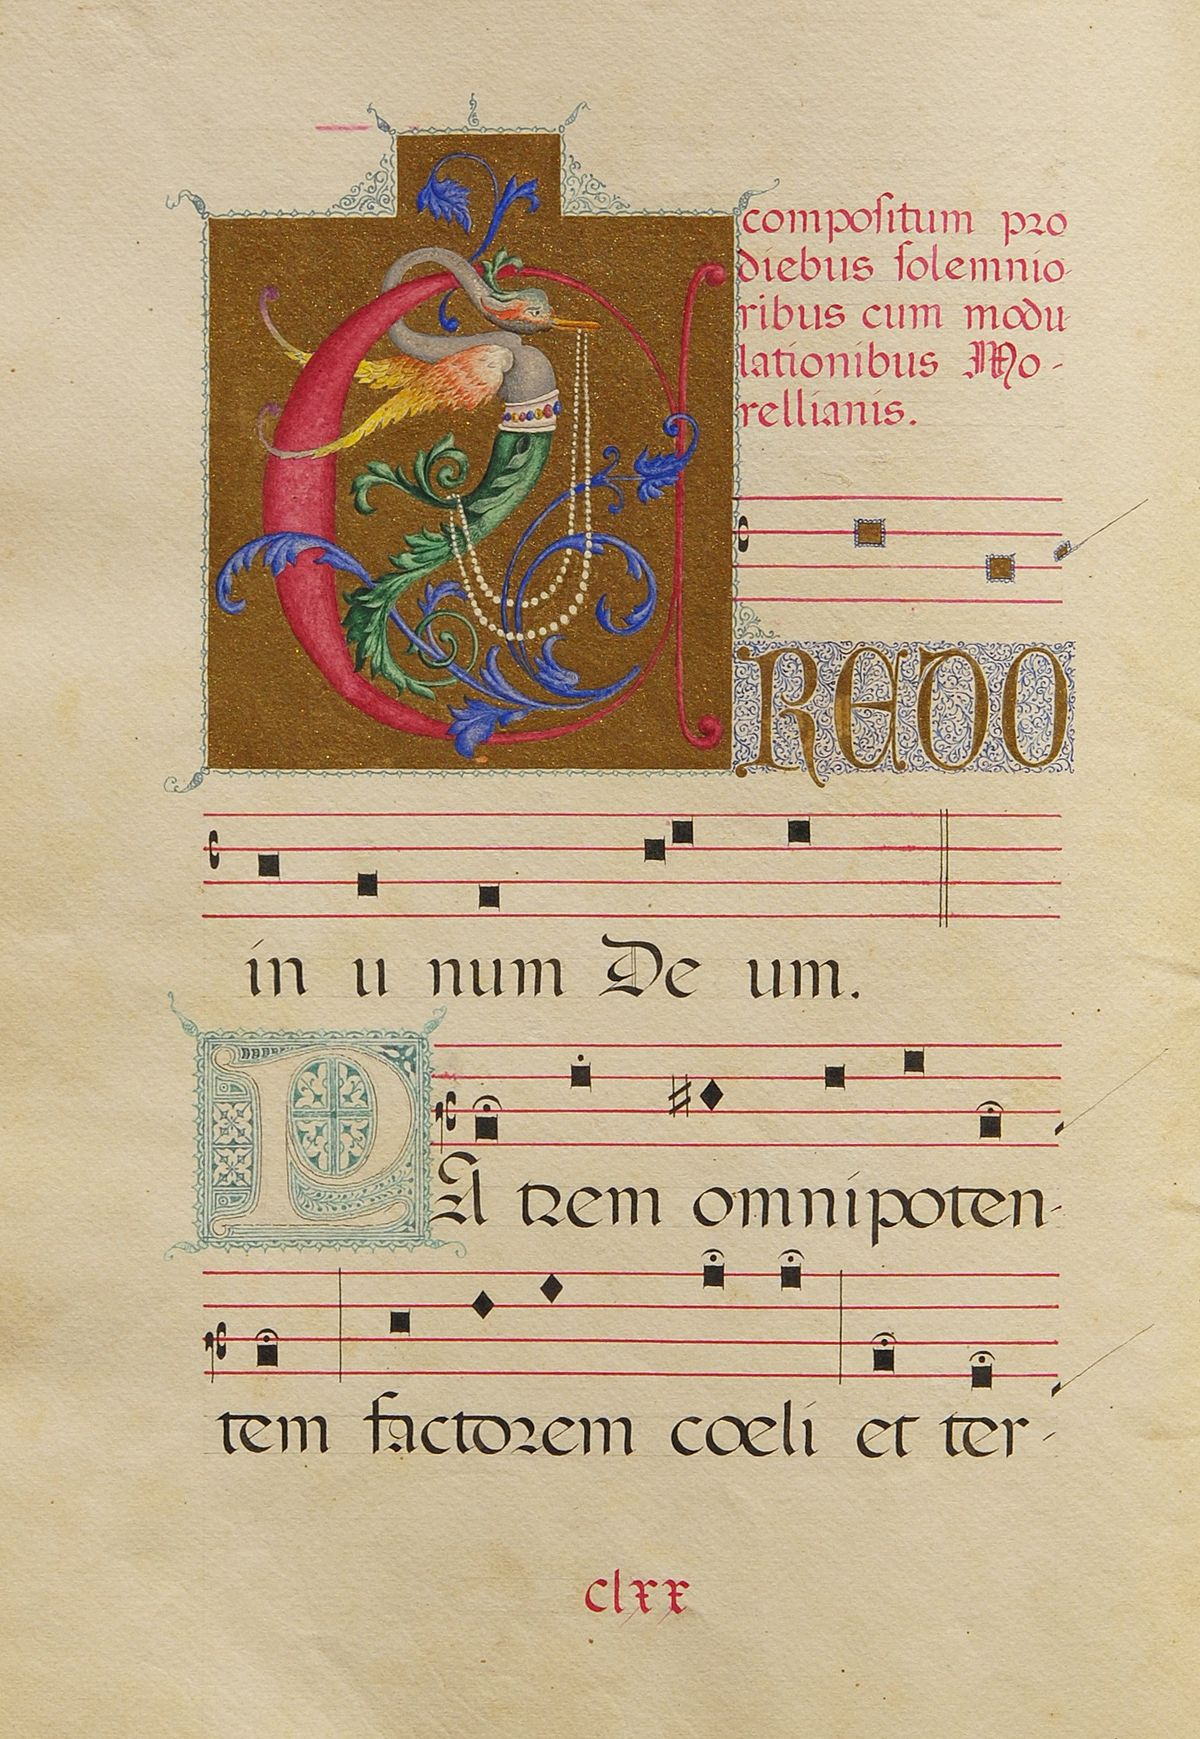 compoſitum pro
diebus ſolemnio-
ribus cum modu
lationibus Mo-
rellianis.
CREDO
in u num De um.
PA trem omnipoten-
tem factorem cœli et ter-
clxx